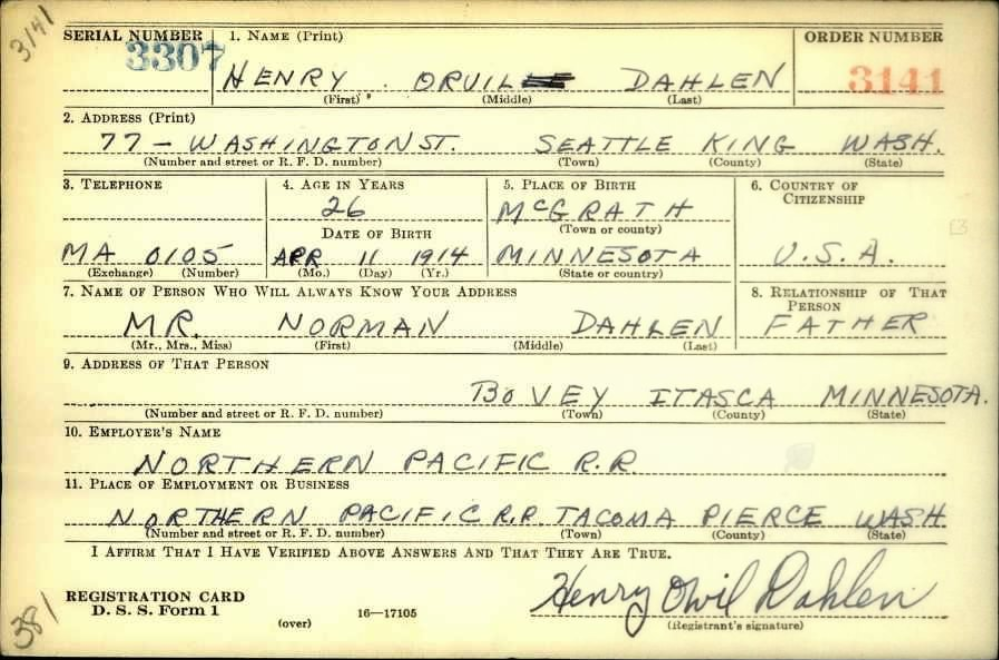 3141
SERIAL NUMBER 1. NAME (Print) ORDER NUMBER
3307 HENRY ORVIL DAHLEN 3141
(First) (Middle) (Last)
2. ADDRESS (Print)
77 - WASHINGTON ST. SEATTLE KING WASH.
(Number and street or R. F. D. number) (Town) (County) (State)
3. TELEPHONE 4. AGE IN YEARS 5. PLACE OF BIRTH 6. COUNTRY OF CITIZENSHIP
26 McGRATH
DATE OF BIRTH (Town or county)
MA 0105 APR 11 1914 MINNESOTA U.S.A.
(Exchange) (Number) (Mo.) (Day) (Yr.) (State or country)
7. NAME OF PERSON WHO WILL ALWAYS KNOW YOUR ADDRESS 8. RELATIONSHIP OF THAT PERSON
MR. NORMAN DAHLEN FATHER
(Mr., Mrs., Miss) (First) (Middle) (Last)
9. ADDRESS OF THAT PERSON
BOVEY ITASCA MINNESOTA.
(Number and street or R. F. D. number) (Town) (County) (State)
10. EMPLOYER'S NAME
NORTHERN PACIFIC R.R.
11. PLACE OF EMPLOYMENT OR BUSINESS
NORTHERN PACIFIC R.R. TACOMA PIERCE WASH.
(Number and street or R. F. D. number) (Town) (County) (State)
I AFFIRM THAT I HAVE VERIFIED ABOVE ANSWERS AND THAT THEY ARE TRUE.
Henry Orvil Dahlen
REGISTRATION CARD
D. S. S. Form 1 16—17105
(over) (Registrant's signature)
381